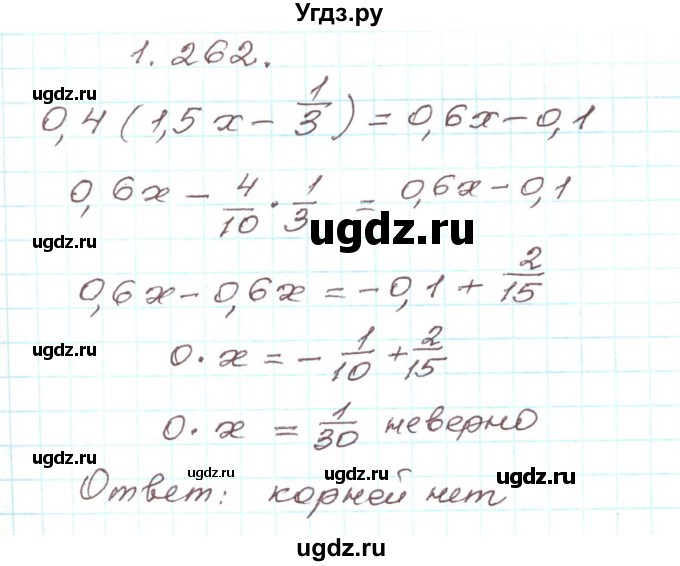 Угдз.ру
1.262.
ugdz.ru
0,4(1,5x - 1/3) = 0,6x - 0,1
0,6x - 4/10 · 1/3 = 0,6x - 0,1
ugdz.ru
ugdz.ru
0,6x - 0,6x = -0,1 + 2/15
ugdz.ru
0 · x = - 1/10 + 2/15
0 · x = 1/30 неверно
ugdz.ru ugdz.ru ugdz.ru ugdz.ru
Ответ: корней нет
ugdz.ru